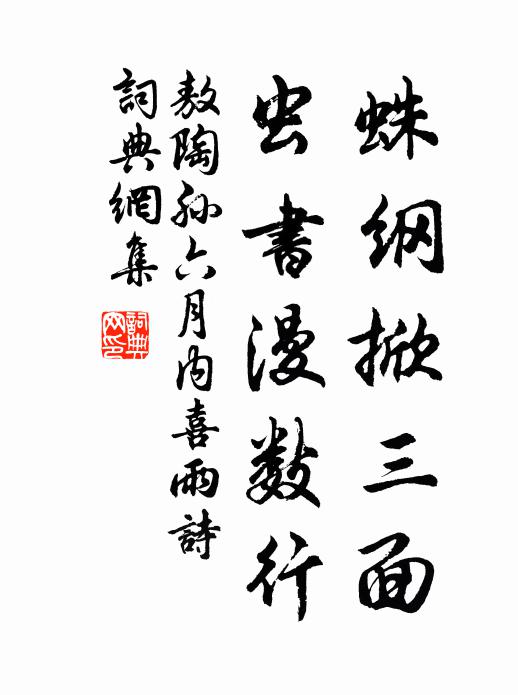 蛛網掀三面
虫書漫數行
敖陶孫六月內喜雨詩
詞典網集
詞典網印